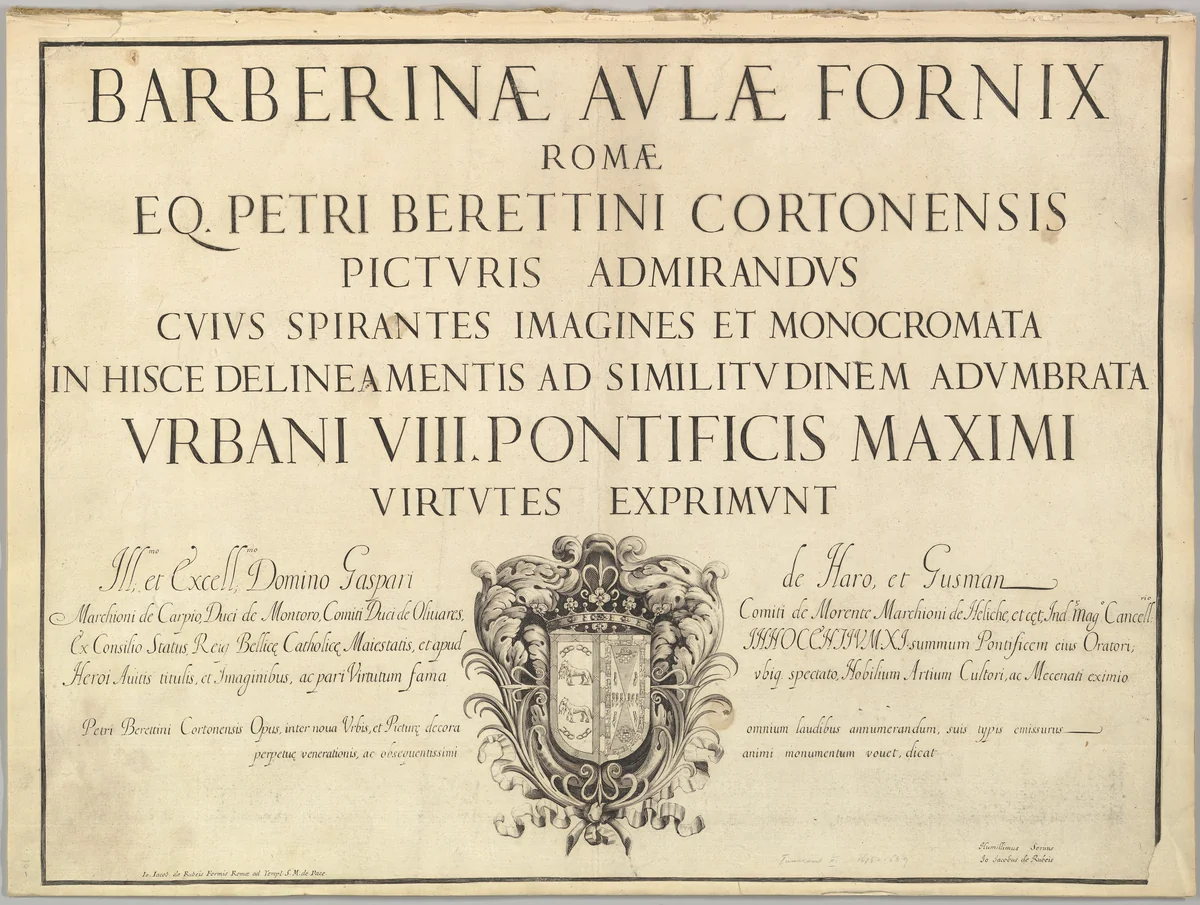 BARBERINÆ AVLÆ FORNIX
ROMÆ
EQ. PETRI BERETTINI CORTONENSIS
PICTVRIS ADMIRANDVS
CVIVS SPIRANTES IMAGINES ET MONOCROMATA
IN HISCE DELINEAMENTIS AD SIMILITVDINEM ADVMBRATA
VRBANI VIII. PONTIFICIS MAXIMI
VIRTVTES EXPRIMVNT
Ill,mo et Excell,mo Domino Gaspari de Haro, et Gusman
Marchioni de Carpio, Duci de Montoro, Comiti Duci de Oliuares, Comiti de Morente, Marchioni de Heliche, et cęt, Ind. Mag. Cancell.rio
Ex Consilio Status, Reiq Bellicę Catholicę Maiestatis, et apud INNOCENTIVM XI. summum Pontificem eius Oratori,
Heroi Auitis titulis, et Imaginibus, ac pari Virtutum fama vbiq. spectato, Nobilium Artium Cultori, ac Mecenati eximio
Petri Berettini Cortonensis Opus, inter noua Vrbis, et Picturę decora omnium laudibus annumerandum, suis typis emissurus
perpetuę venerationis, ac obsequentissimi animi monumentum vouet, dicat
Humillimus Seruus
Io Iacobus de Rubeis
Io. Iacob. de Rubeis Formis Romæ ad Templ. S. M. de Pace.